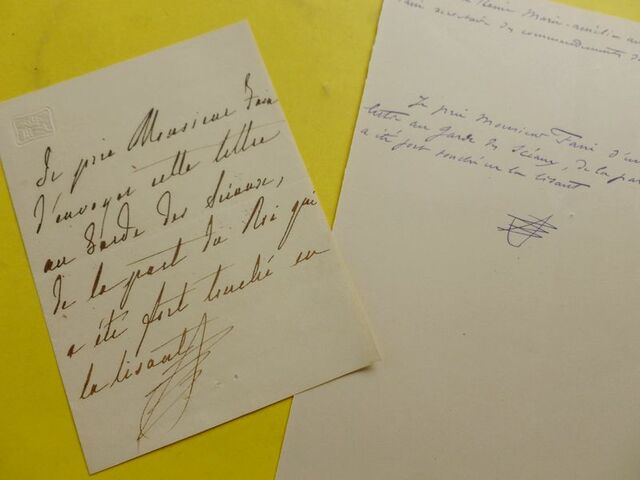 Je prie Monsieur Fain
d'envoyer cette lettre
au Garde des Sceaux,
de la part du Roi qui
a été fort touché en
la lisant
Reine Marie-amélie au
secrétaire des commandements de
Je prie Monsieur Fain d'en
lettre au garde des Sceaux, de la par
a été fort touché en la lisant